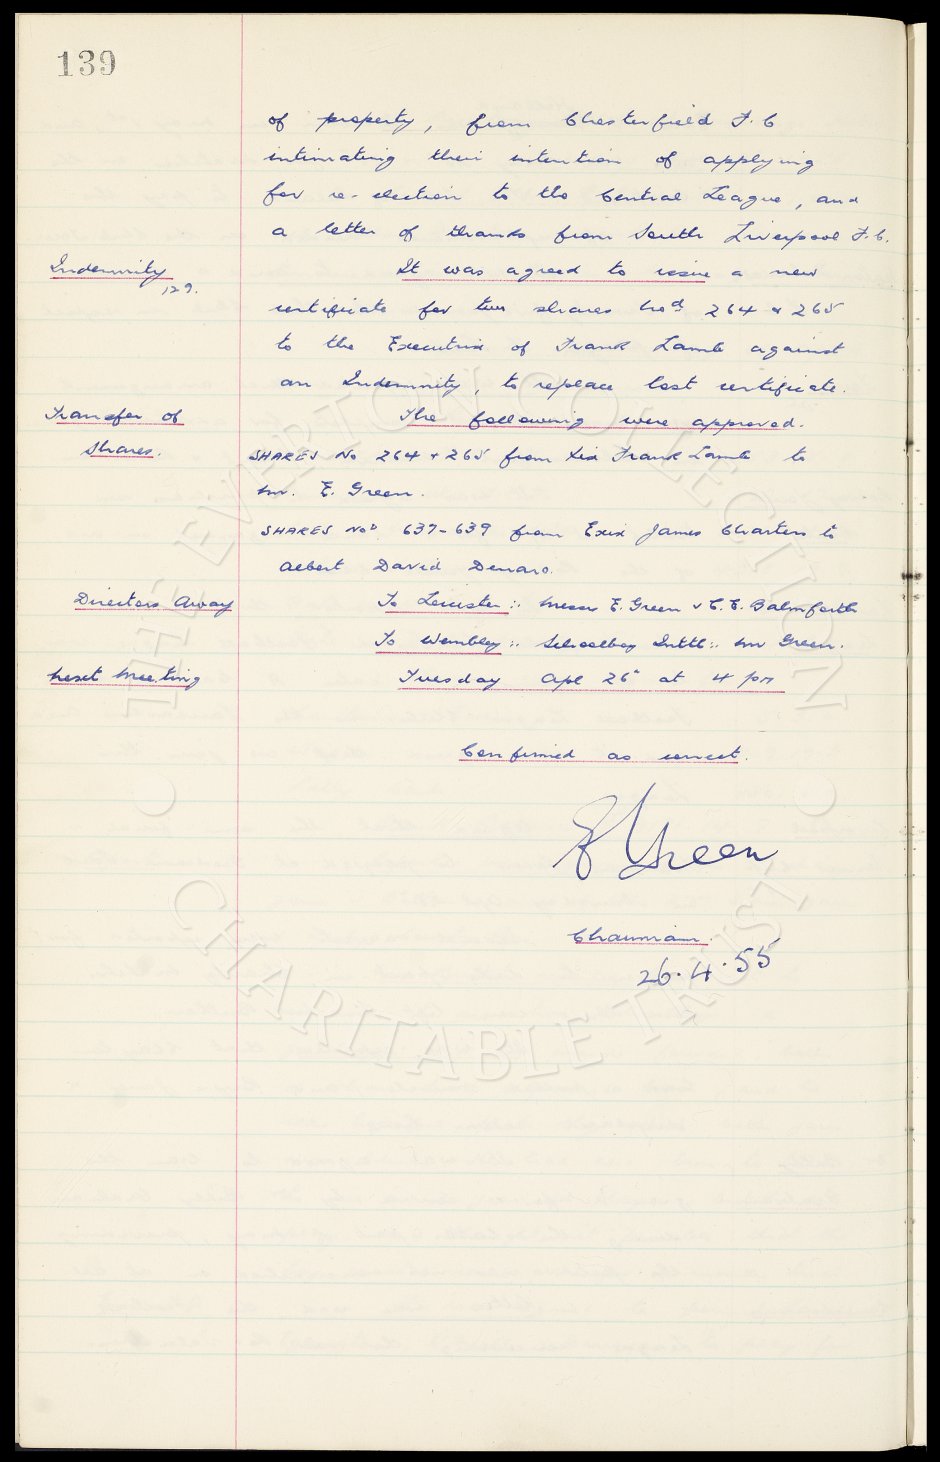 139
of property, from Chesterfield F.C
intimating their intention of applying
for re-election to the Central League, and
a letter of thanks from South Liverpool F.C.
Indemnity It was agreed to issue a new
129.
certificate for two shares Nod 264 & 265
to the Executrix of Frank Lamb against
an Indemnity, to replace lost certificate.
Transfer of The following were approved.
Shares. SHARES No 264 & 265 from Exix Frank Lamb to
Mr. E. Green.
SHARES Nod 637-639 from Exix James Charters to
Albert David Denaro.
Directors Away To Leicester :: Messrs E. Green & C. E. Balmforth
To Wembley :: Schoolboy Inttl :: Mr Green.
Next Meeting Tuesday Apl 26th at 4 pm
Confirmed as correct.
E Green
Chairman.
26.4.55
THE EVERTON COLLECTION
CHARITABLE TRUST